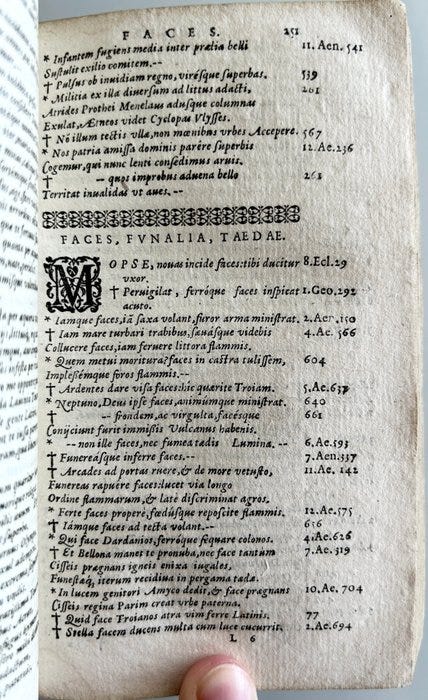 FACES. 251
* Infantem fugiens media inter prælia belli 11. Aen. 541
Sustulit exilio comitem.--
† Pulsus ob inuidiam regno, virésque superbas. 539
* Militia ex illa diuersum ad littus adacti, 261
Atrides Prothei Menelaus adusque columnas
Exulat, Ætneos videt Cyclopas Vlysses.
† Nō illum tectis vllæ, non mœnibus vrbes Accepere. 567
* Nos patria amissa dominis parére superbis 12. Ae. 236
Cogemur, qui nunc lenti consedimus aruis.
† -- quos improbus aduena bello 261
Territat inualidas vt aues.--
FACES, FVNALIA, TAEDAE.
MOPSE, nouas incide faces: tibi ducitur 8. Ecl. 29
vxor.
† Peruigilat, ferróque faces inspicat 1. Geo. 292
acuto.
* Iamque faces, iā saxa volant, furor arma ministrat. 2. Aen. 150
† Iam mare turbari trabibus, sæuasque videbis 4. Ae. 566
Collucere faces, iam feruere littora flammis.
* Quem metui moritura? faces in castra tulissem, 604
Implessémque foros flammis.--
† Ardentes dare visa faces: hic quærite Troiam. 5. Ae. 637
* Neptuno, Deus ipse faces, animúmque ministrat. 640
† -- frondem, ac virgulta, facésque 661
Conijciunt furit immissis Vulcanus habenis.
* -- non ille faces, nec fumea tædis Lumina.-- 6. Ae. 593
† Funereasque inferre faces.-- 7. Aen. 337
† Arcades ad portas ruere, & de more vetusto, 11. Ae. 142
Funereas rapuére faces: lucet via longo
Ordine flammarum, & late discriminat agros.
* Ferte faces properè, fœdúsque reposcite flammis. 12. Ae. 575
† Iámque faces ad tecta volant.-- 656
* Qui face Dardanios, ferróque sequare colonos. 4. Ae. 626
† Et Bellona manet te pronuba, nec face tantum 7. Ae. 319
Cisseis prægnans igneis enixa iugales,
Funestæq́, iterum recidiua in pergama tædæ.
* In lucem genitori Amyco dedit, & face prægnans 10. Ae. 704
Cisseis regina Parim creat vrbe paterna.
† Quid face Troianos atra vim ferre Latinis. 77
† Stella facem ducens multa cum luce cucurrit. 2. Ae. 694
L 6